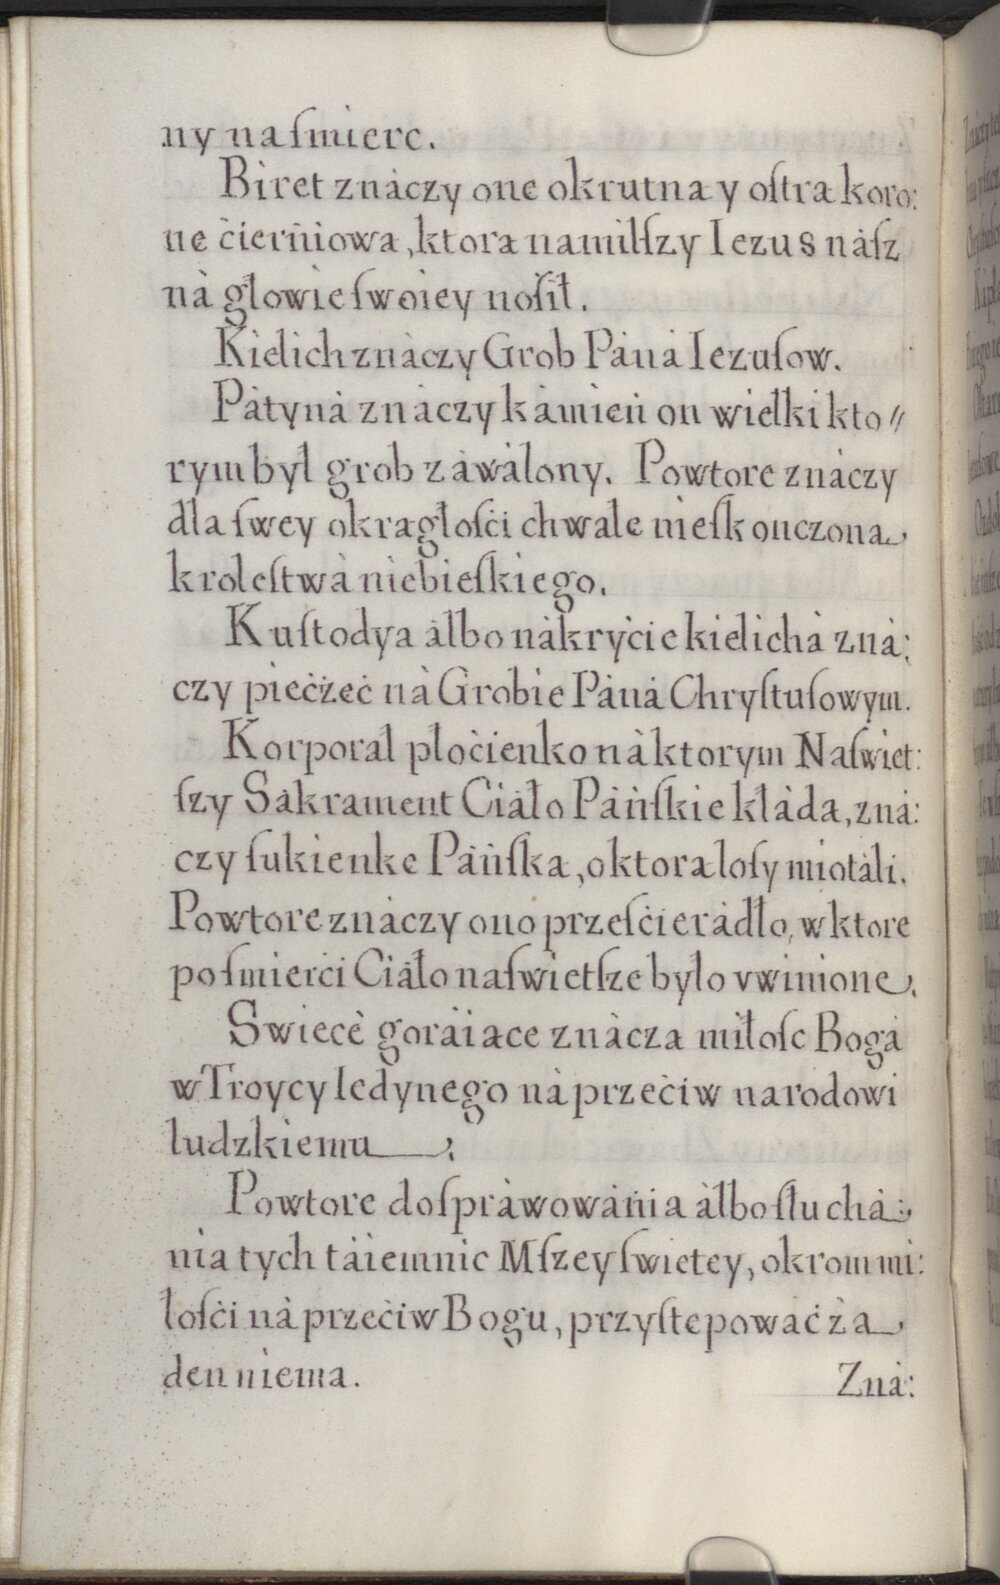 ny na ſmierc.
Biret znáczy one okrutna y oſtra koro:
ne ćierńiowa, ktora namilſzy Iezus náſz
ná głowie ſwoiey noſił.
Kielich znáczy Grob Páná Iezuſow.
Pátyná znáczy kámień on wielki kto〃
rym był grob záwálony. Powtore znáczy
dla ſwey okragłoſći chwałe nieſkonczona
kroleſtwá niebieſkiego.
Kuſtodya álbo nákryćie kielichá zná:
czy piećżeć ná Grobie Páná Chryſtuſowym.
Korporał płoćienko ná ktorym Naſwiet:
ſzy Sákrament Ciáło Páńſkie kłáda, zná:
czy ſukienke Páńſka, o ktora loſy miotáli.
Powtore znáczy ono przeſćierádło, w ktore
po ſmierći Ciáło naſwietſze było vwinione.
Swiecè goráiace znácza miłoſc Bogá
w Troycy Iedynego náprzećiw narodowi
ludzkiemu.
Powtore do ſpráwowánia álbo ſłuchá:
nia tych táiemnic Mſzey ſwietey, okrom mi:
łoſći náprzećiw Bogu, przyſtepowáć ża
den niema.
Zná: